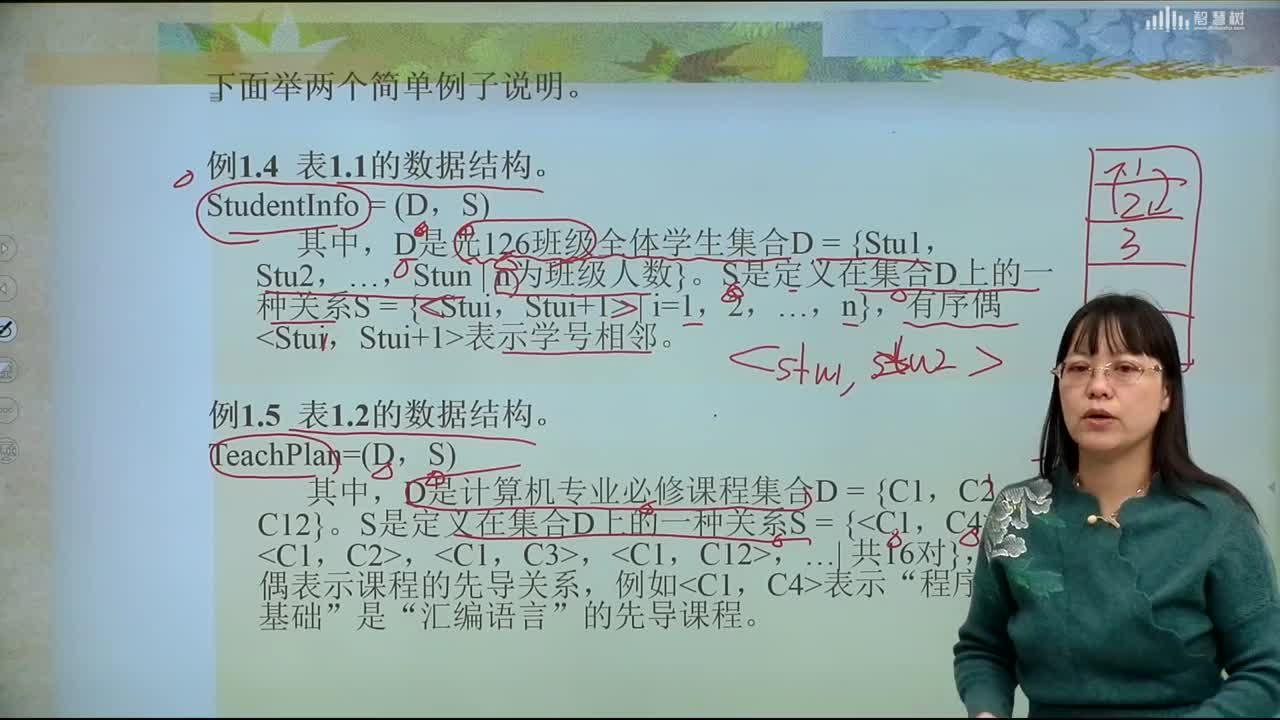 智慧树
下面举两个简单例子说明。
例1.4 表1.1的数据结构。
StudentInfo = (D，S)
其中，D是光126班级全体学生集合D = {Stu1，
Stu2，…，Stun | n为班级人数}。S是定义在集合D上的一
种关系S = {<Stui，Stui+1>| i=1，2，…，n}，有序偶
<Stui，Stui+1>表示学号相邻。
1
2
3
<stu1, stu2>
例1.5 表1.2的数据结构。
TeachPlan=(D，S)
其中，D是计算机专业必修课程集合D = {C1，C2
C12}。S是定义在集合D上的一种关系S = {<C1，C4
<C1，C2>，<C1，C3>，<C1，C12>，…| 共16对}，
偶表示课程的先导关系，例如<C1，C4>表示“程序
基础”是“汇编语言”的先导课程。